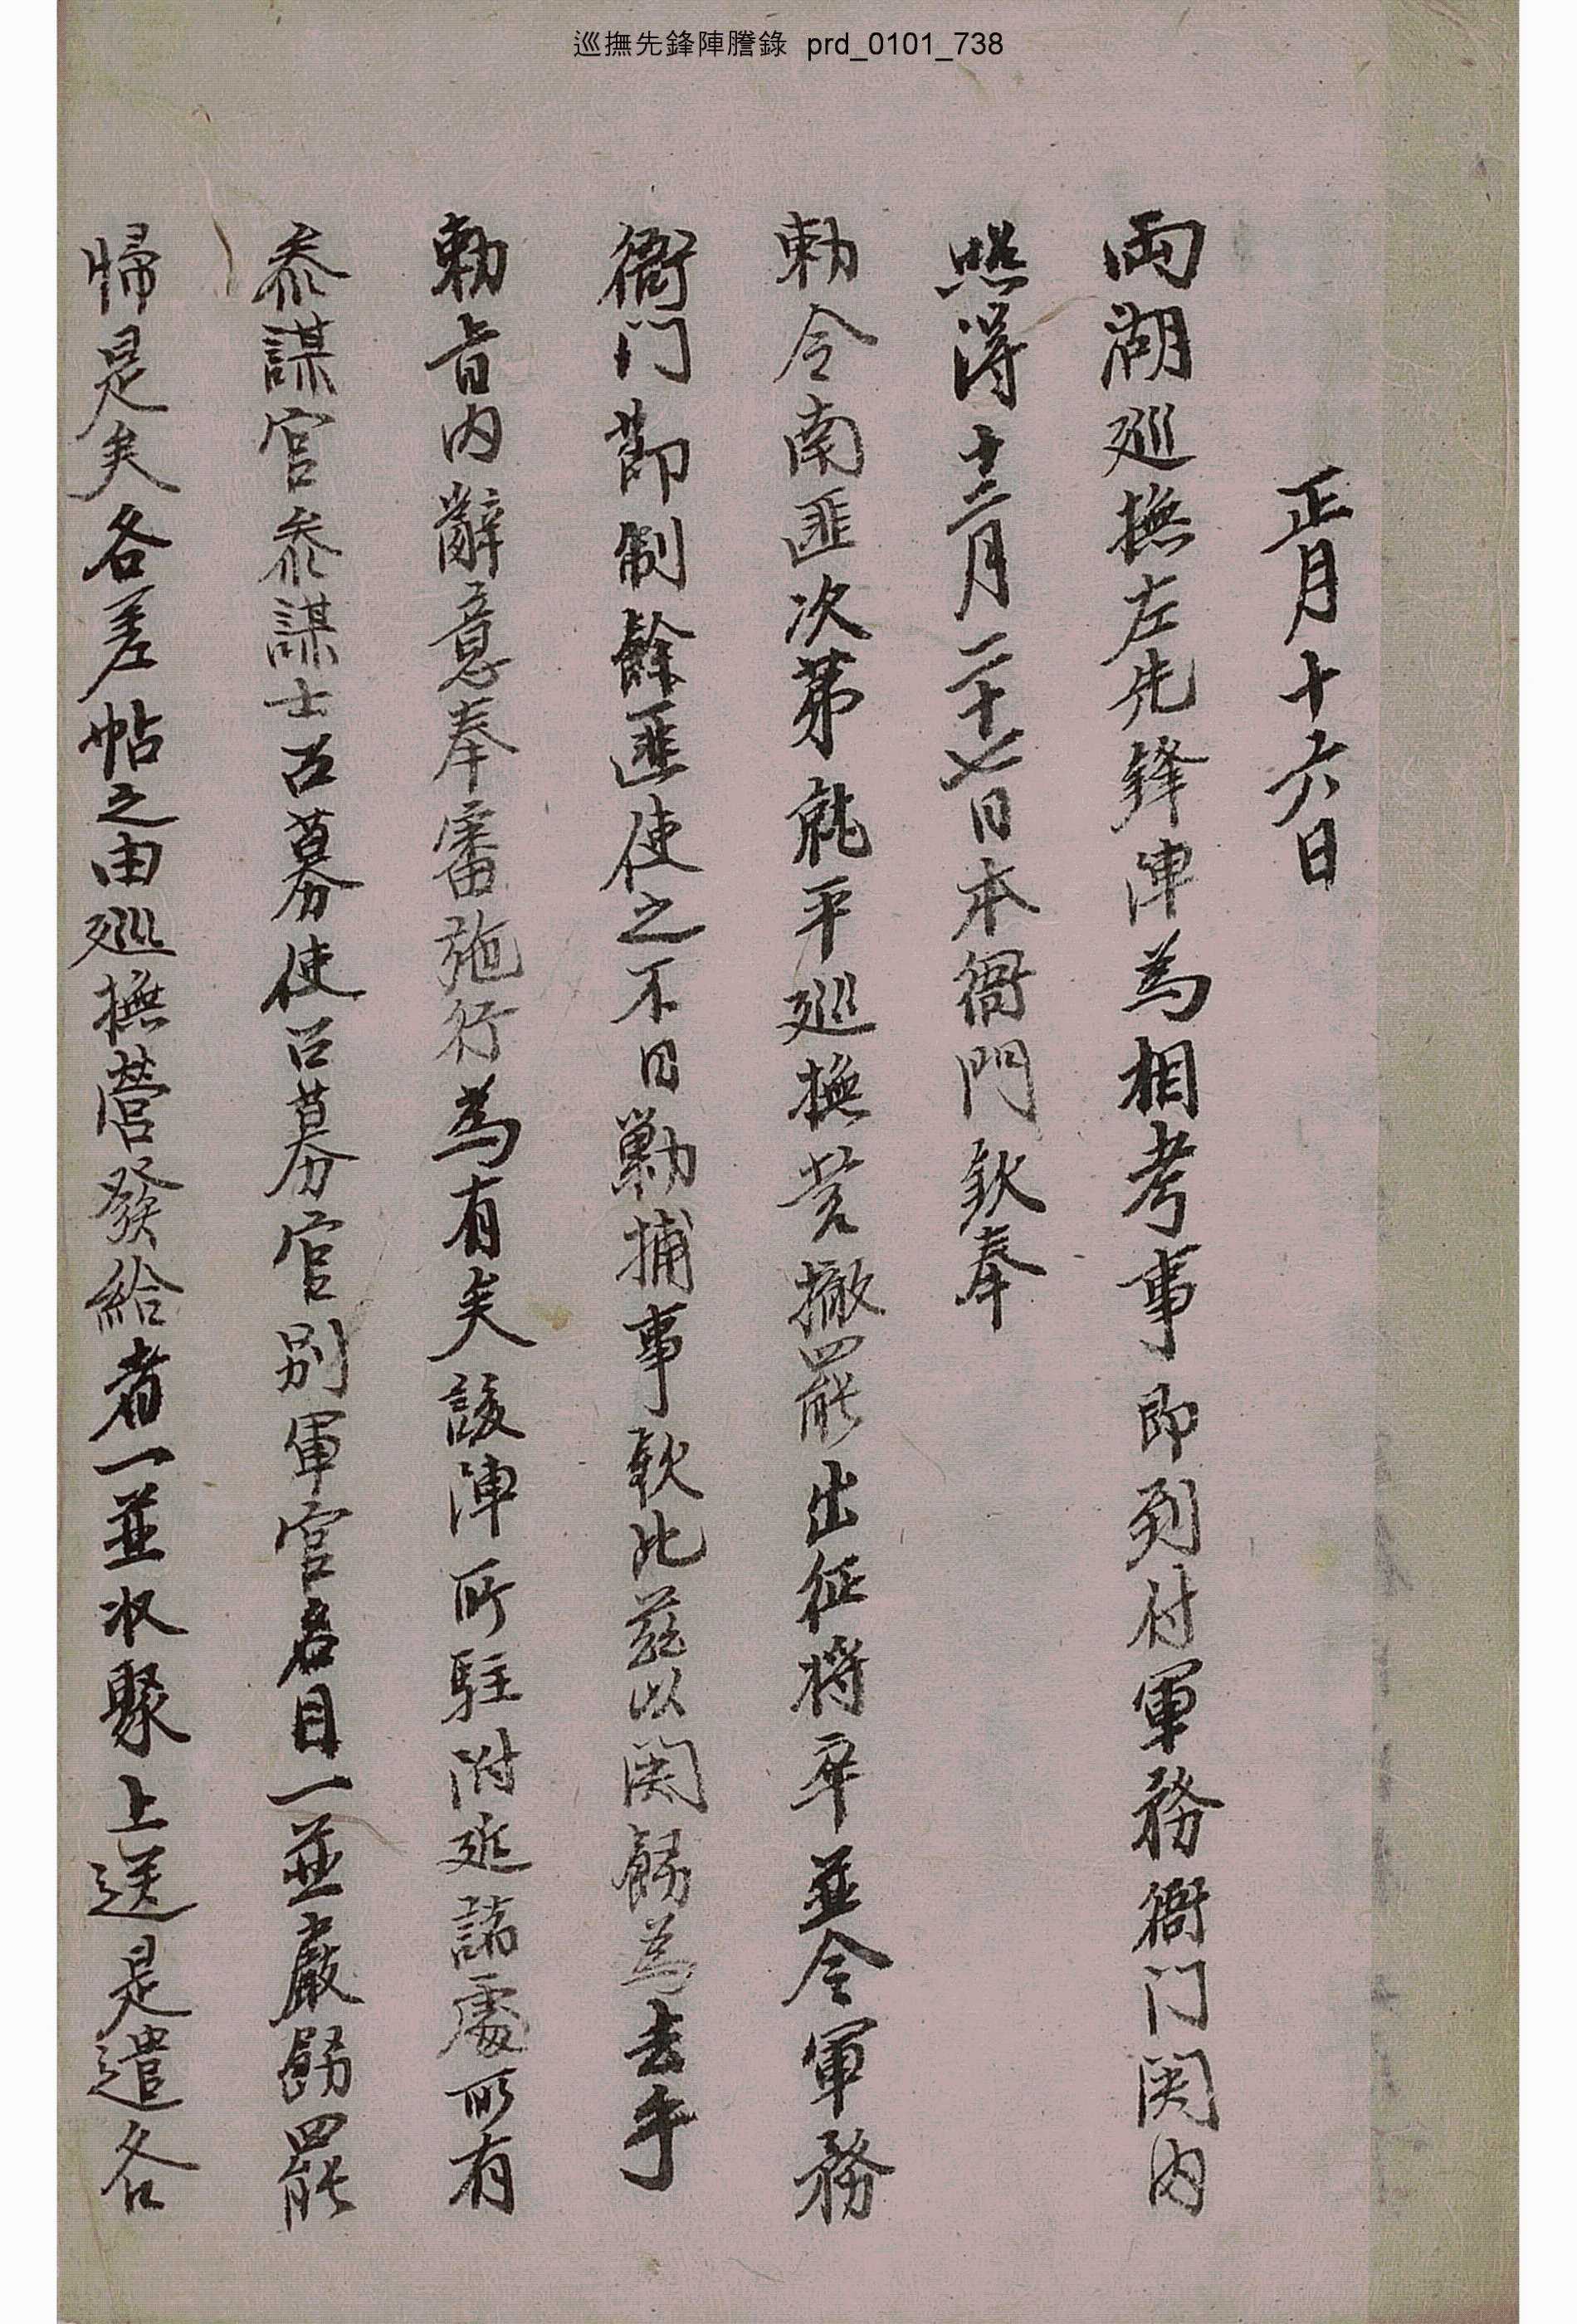 巡撫先鋒陣謄錄 prd_0101_738
正月十六日
兩湖巡撫左先鋒陣爲相考事卽到付軍務衙门関內
照得十二月二十七日本衙門欽奉
勅令南匪次第就平巡撫營撤罷出征將卒並令軍務
衙门節制餘匪使之不日勦捕事欽此玆以関飭爲去乎
勅旨內辭意奉審施行爲有矣該陣所駐附近諸處所有
叅謀官叅謀士召募使召募官別軍官名目一並嚴飭罷
帰是矣各差帖之由巡撫營發給者一並收聚上送是遣各